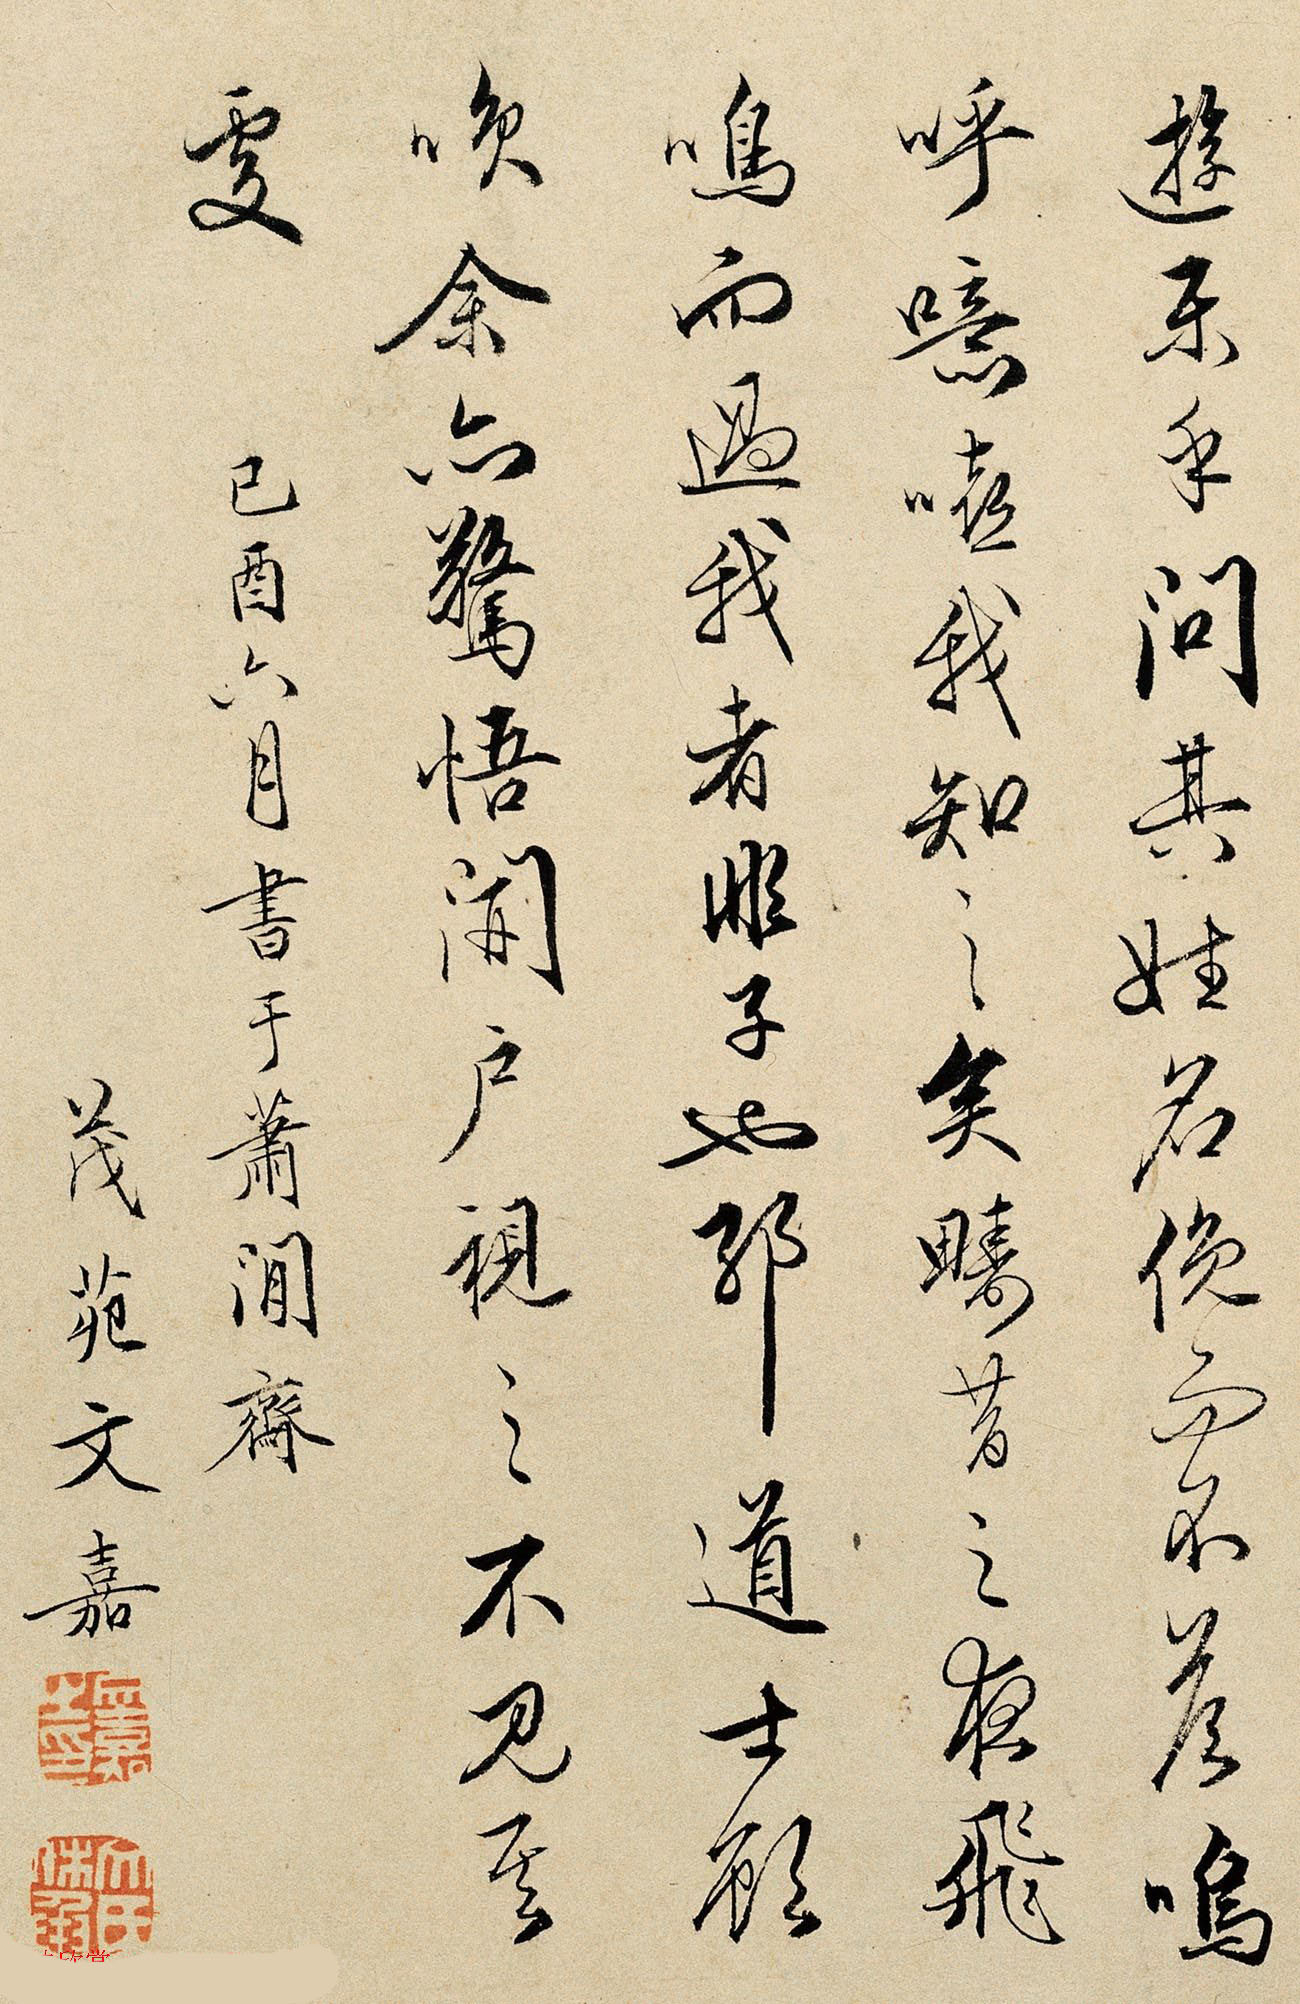 遊樂乎問其姓名俛而不荅嗚
呼噫嘻我知之矣疇昔之夜飛
鳴而過我者非子也耶道士顧
唉余亦驚悟開户視之不見其
䖏
己酉六月書于蕭閒齋
茂苑文嘉